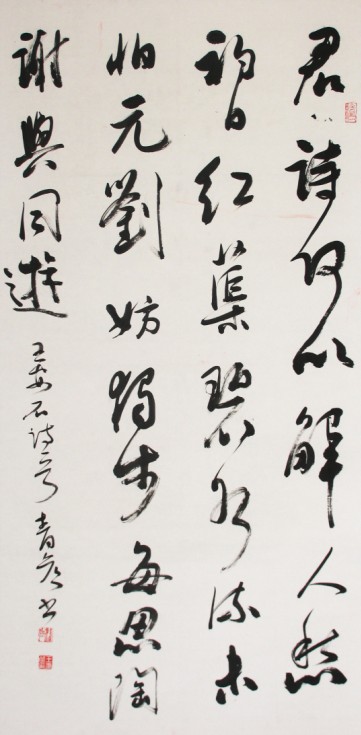 君詩何以解人愁
初日紅蕖碧水流未
怕元劉妨獨步每思陶
謝與同遊
王安石詩 書